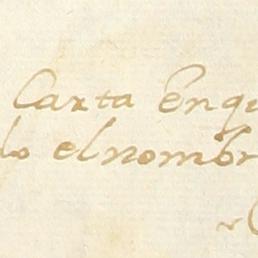 Carta Enqu
do elnombr